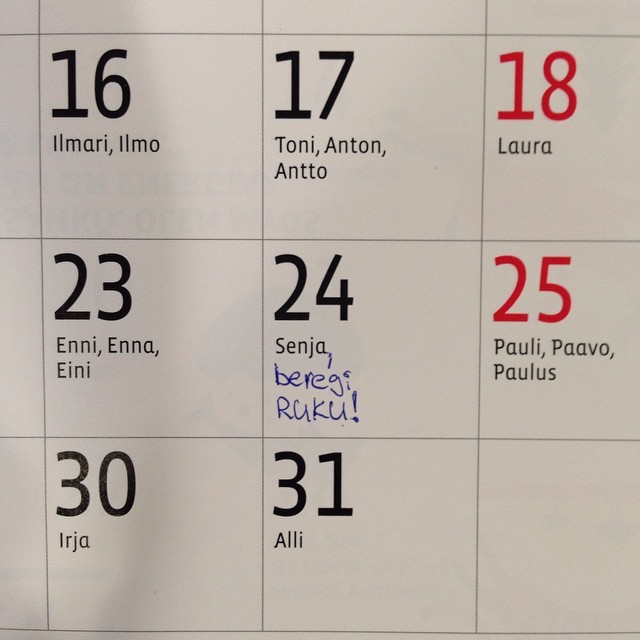 16
Ilmari, Ilmo
17
Toni, Anton,
Antto
18
Laura
23
Enni, Enna,
Eini
24
Senja,
beregi
RUKU!
25
Pauli, Paavo,
Paulus
30
Irja
31
Alli